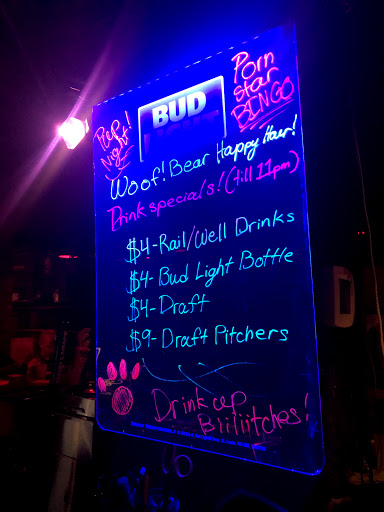 Pep
Night!
BUD
LIGHT
Porn
Star
BINGO
Woof! Bear Happy Hour!
Drink specials! (till 11pm)
$4-Rail/Well Drinks
$4-Bud Light Bottle
$4-Draft
$9-Draft Pitchers
Drink up
Biiiiitches!